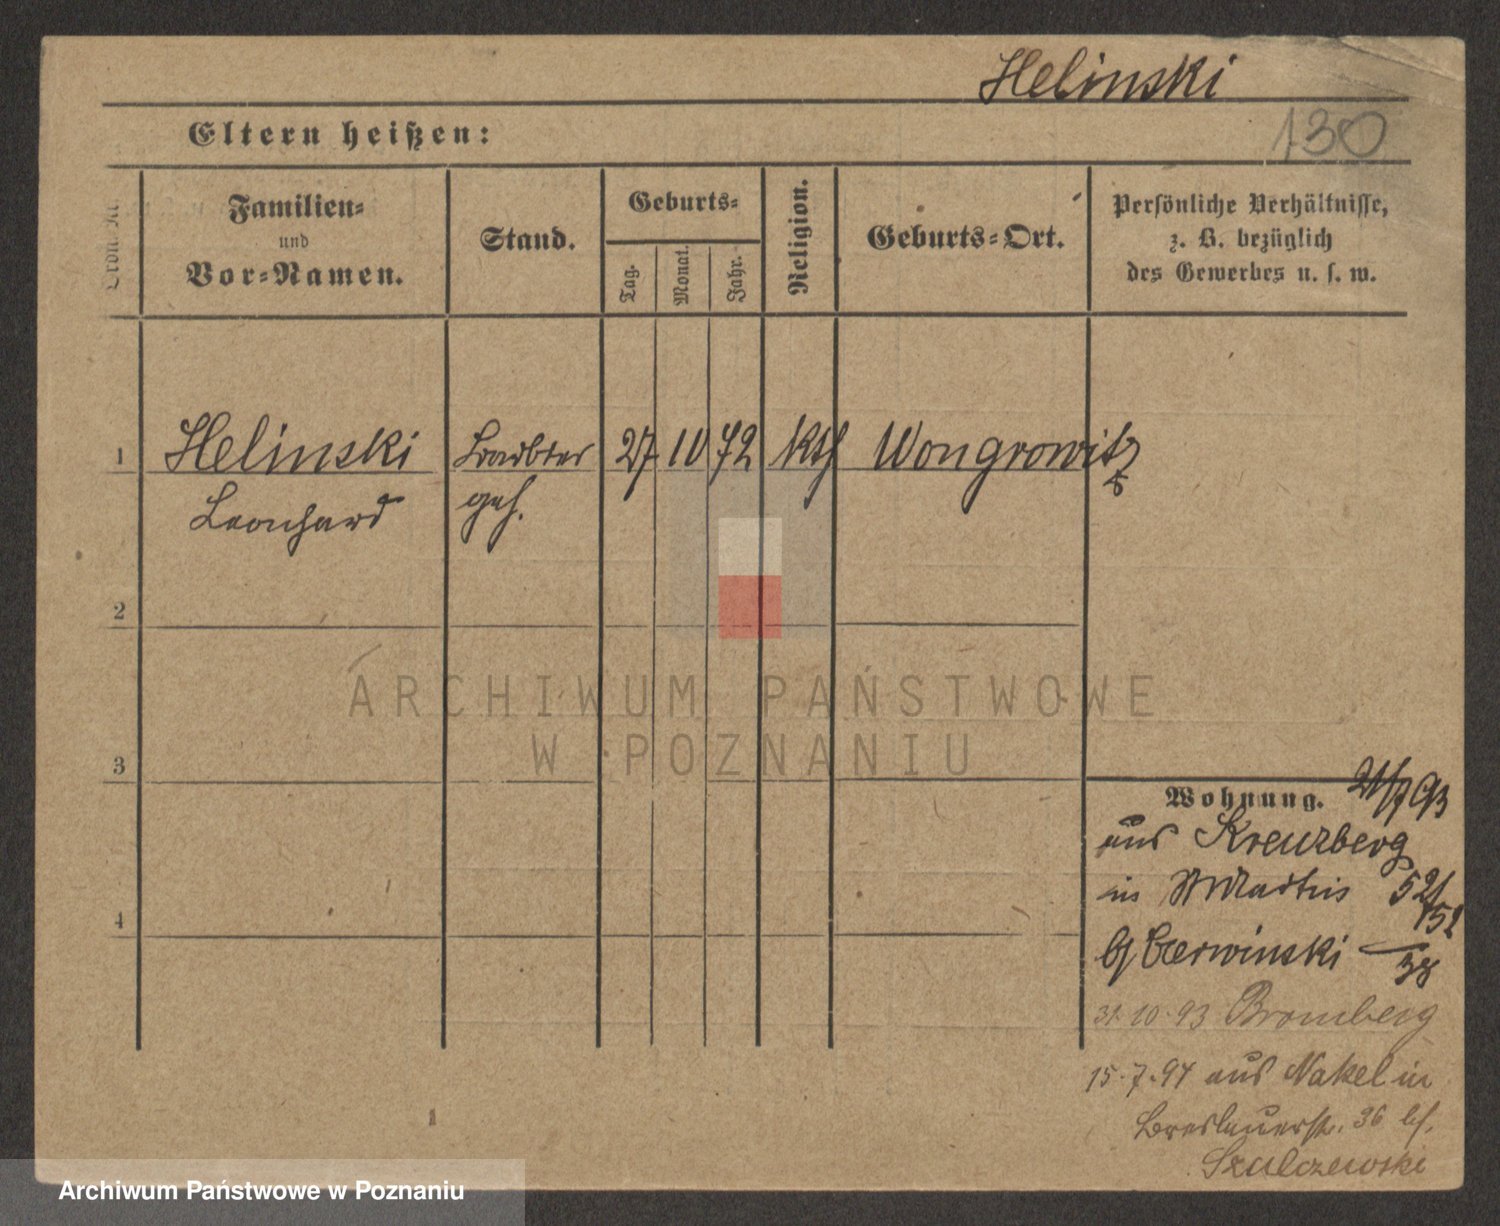 Helinski
130
Eltern heißen:
Ordn. Nr.
Familien-
und
Vor-Namen.
Stand.
Geburts-
Tag.
Monat.
Jahr.
Religion.
Geburts-Ort.
Persönliche Verhältnisse,
z. B. bezüglich
des Gewerbes u. s. w.
1 Helinski 27 10 72 kth Wongrowitz
Leonhard geh.
2
3
4
Wohnung. 21/7 93
aus Kreuzberg
in St Martin 52/
152
b/ Czerwinski
38
31.10.93 Bromberg
15.7.94 aus Nakel in
Breslauerstr. 36 b/.
Szulczewski
1
ARCHIWUM PAŃSTWOWE
W POZNANIU
Archiwum Państwowe w Poznaniu